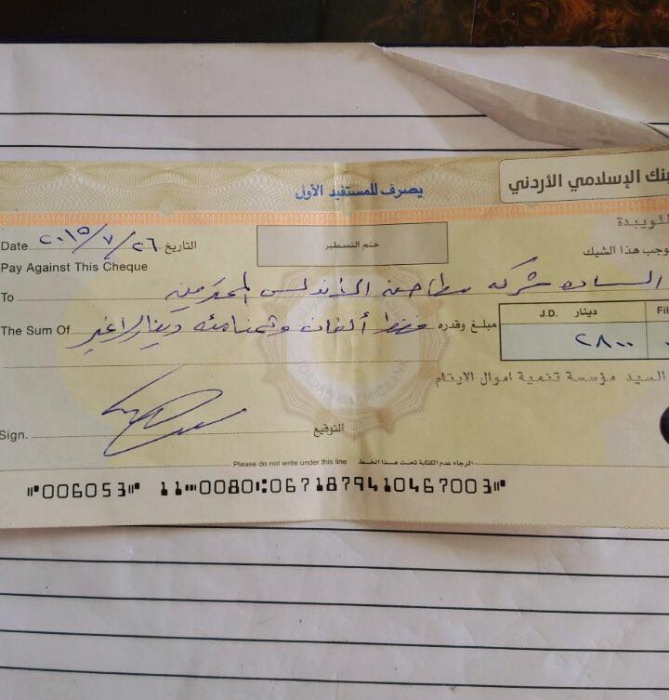 بنك الإسلامي الأردني
يصرف للمستفيد الأول
للويبدة
Date ٢٠١٥/٧/٢٦ التاريخ
ختم التسطير
وجب هذا الشيك
Pay Against This Cheque
To السادة شركه مطاحن الأندلس المحترمين
دينار J.D. Fil
The Sum Of مبلغ وقدره فقط ألفان وثمنامئه دينار لاغير
٢٨٠٠
السيد مؤسسة تنمية اموال الايتام
Sign. التوقيع
Please do not write under this line الرجاء عدم الكتابة تحت هذا الخط
⑈006053⑈ 11⑉0080⑆067187941046７003⑈